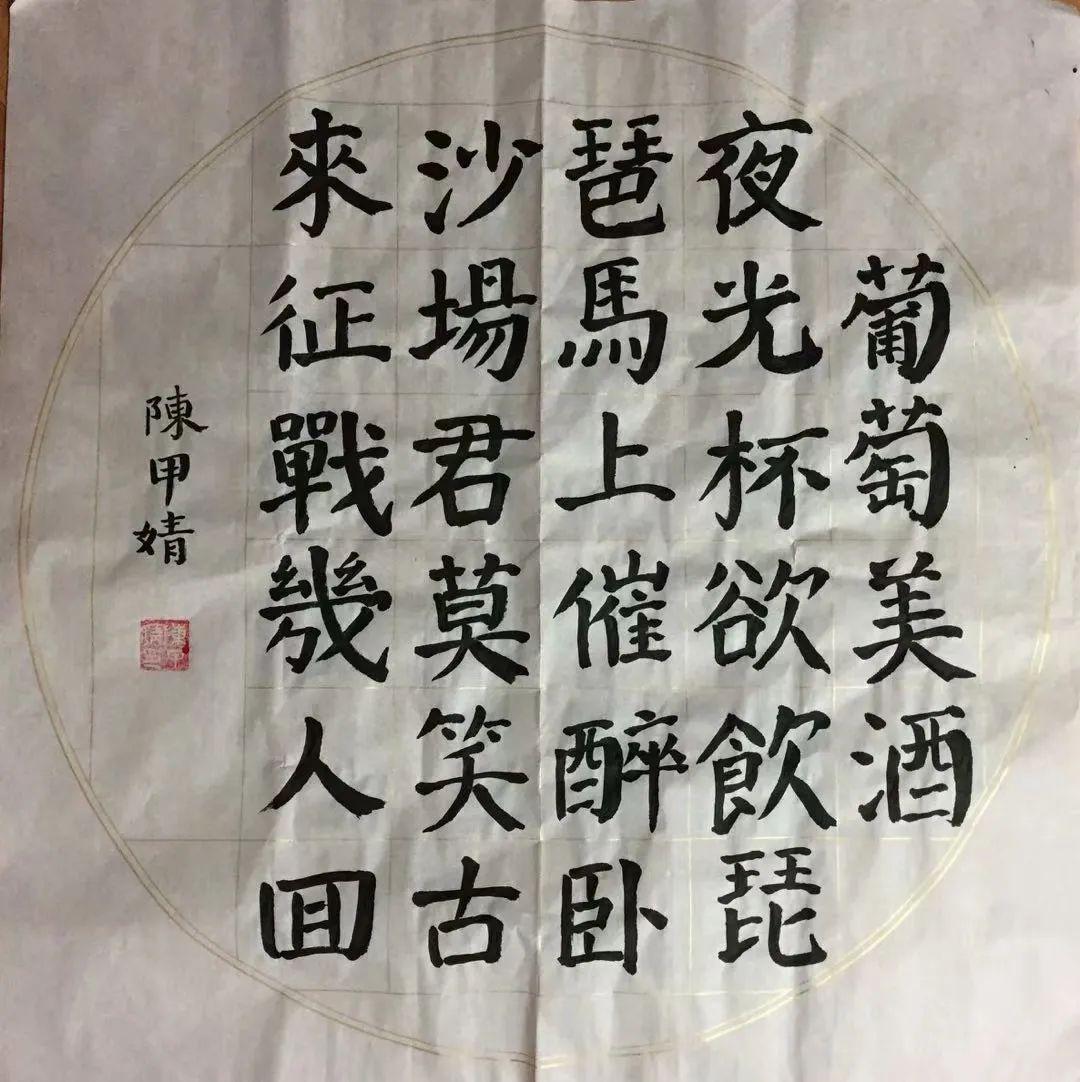 葡萄美酒
夜光杯欲飲琵
琶馬上催醉卧
沙場君莫笑古
來征戰幾人囬
陳甲婧